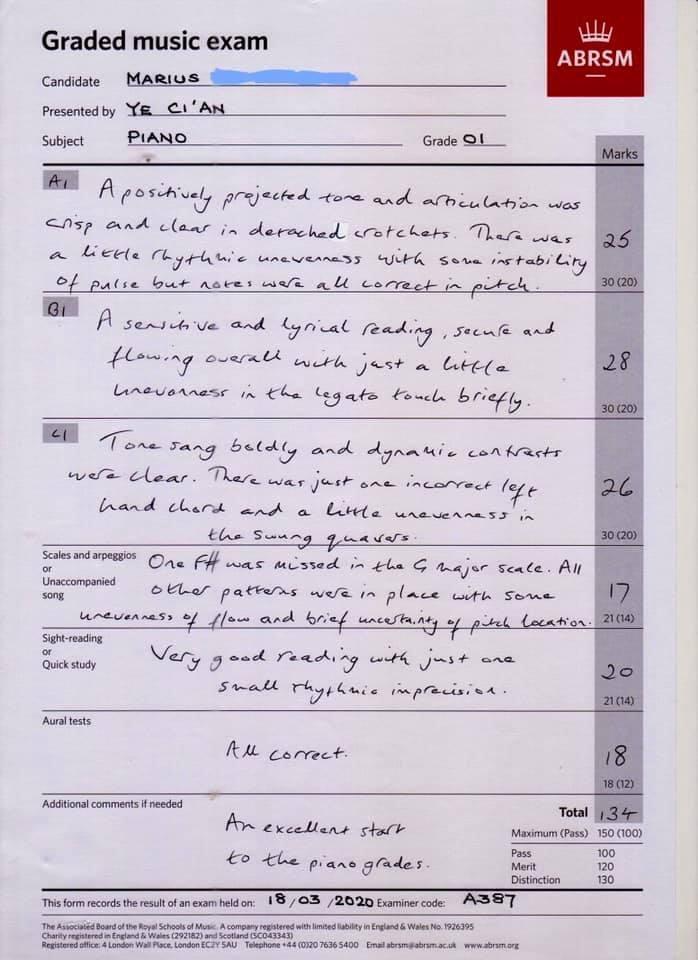 Graded music exam
ABRSM
Candidate MARIUS
Presented by YE CI'AN
Subject PIANO Grade 01
Marks
A1 A positively projected tone and articulation was
crisp and clear in detached crotchets. There was
a little rhythmic unevenness with some instability
of pulse but notes were all correct in pitch.
25
30 (20)
B1 A sensitive and lyrical reading, secure and
flowing overall with just a little
unevenness in the legato touch briefly.
28
30 (20)
C1 Tone sang boldly and dynamic contrasts
were clear. There was just one incorrect left
hand chord and a little unevenness in
the swung quavers.
26
30 (20)
Scales and arpeggios
or
Unaccompanied
song
One F# was missed in the G major scale. All
other patterns were in place with some
unevenness of flow and brief uncertainty of pitch location.
17
21 (14)
Sight-reading
or
Quick study
Very good reading with just one
small rhythmic imprecision.
20
21 (14)
Aural tests
All correct.
18
18 (12)
Additional comments if needed
An excellent start
to the piano grades.
Total 134
Maximum (Pass) 150 (100)
Pass 100
Merit 120
Distinction 130
This form records the result of an exam held on: 18/03/2020 Examiner code: A387
The Associated Board of the Royal Schools of Music. A company registered with limited liability in England & Wales No. 1926395
Charity registered in England & Wales (292182) and Scotland (SC043343)
Registered office: 4 London Wall Place, London EC2Y 5AU Telephone +44 (0)20 7636 5400 Email abrsm@abrsm.ac.uk www.abrsm.org